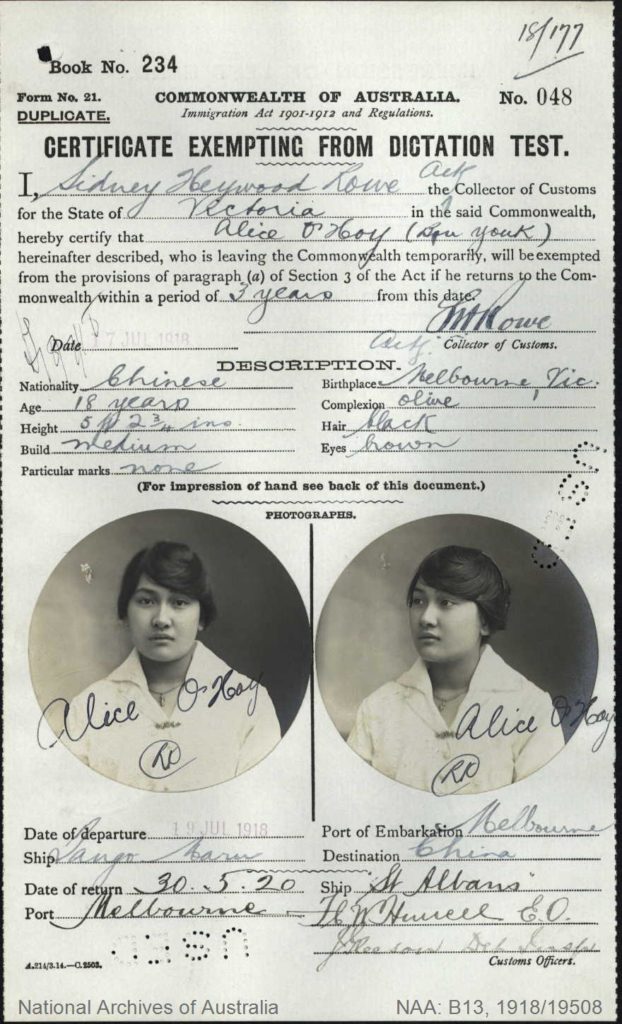 18/177
Book No. 234
Form No. 21. COMMONWEALTH OF AUSTRALIA. No. 048
DUPLICATE. Immigration Act 1901-1912 and Regulations.
CERTIFICATE EXEMPTING FROM DICTATION TEST.
Actg
I, Sidney Heywood Rowe the Collector of Customs
for the State of Victoria in the said Commonwealth,
hereby certify that Alice O'Hoy
hereinafter described, who is leaving the Commonwealth temporarily, will be exempted
from the provisions of paragraph (a) of Section 3 of the Act if he returns to the Com-
monwealth within a period of 3 years from this date.
Rowe
Date 17 JUL 1918 Actg Collector of Customs.
DESCRIPTION.
Nationality Chinese Birthplace Melbourne, Vic.
Age 18 years Complexion olive
Height 5 ft 2 3/4 ins. Hair black
Build medium Eyes brown
Particular marks none
(For impression of hand see back of this document.)
PHOTOGRAPHS.
Alice O'Hoy Alice O'Hoy
Date of departure 19 JUL 1918 Port of Embarkation Melbourne
Ship Tango Maru Destination China
Date of return 30.5.20 Ship "St Albans"
Port Melbourne
USED
A.214/3.14.—C.2503. Customs Officers.
National Archives of Australia NAA: B13, 1918/19508